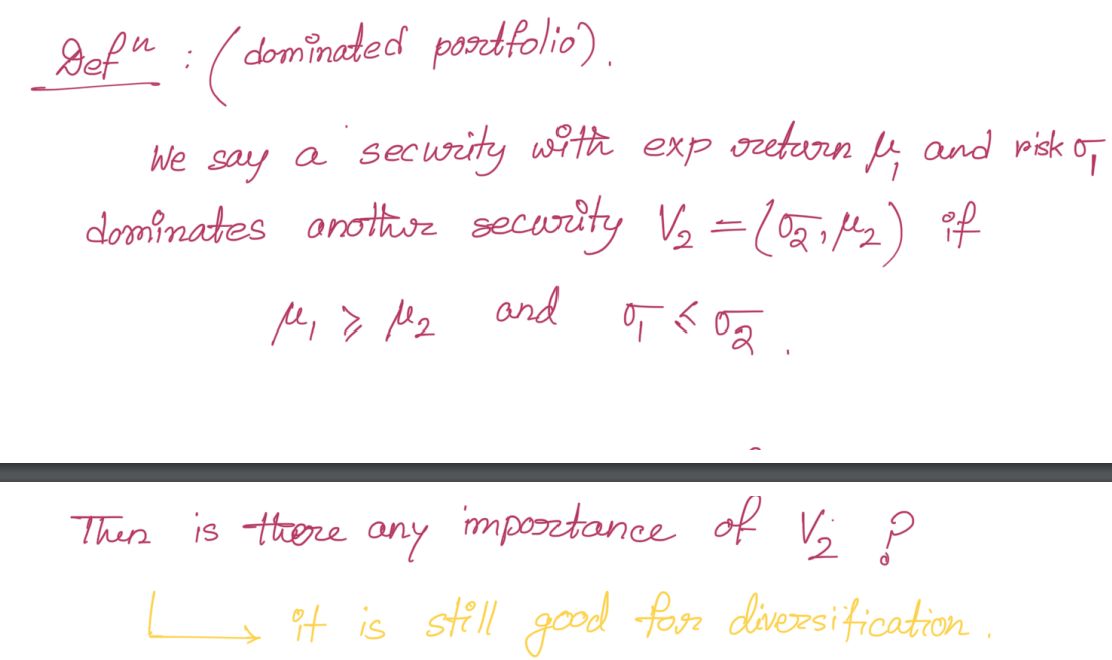 Defⁿ : (dominated portfolio).
We say a security with exp return μ₁ and risk σ₁
dominates another security V₂ = (σ₂, μ₂) if
μ₁ ⩾ μ₂ and σ₁ ⩽ σ₂.
Then is there any importance of V₂ ?
↳ it is still good for diversification.